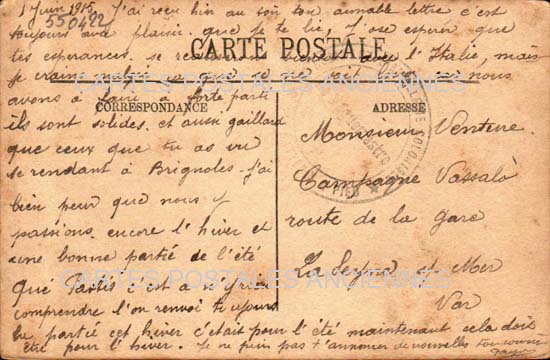 1 Juin 1915. J'ai reçu hier au soir ton aimable lettre c'est
550422
toujours avec plaisir que je te lie, J'ose esperer que
tes esperances se avec l'Italie, mais
CARTE POSTALE
je crains que se ne nous
CARTES POSTALES ANCIENNES
avons à faire à forte parti
CORRESPONDANCE
ils sont solides et aussi gaillard
que ceux que tu as vu
se rendant à Brignoles. J'ai
bien peur que nous y
passions encore l'hiver et
une bonne partie de l'été
CARTES POSTALES ANCIENNES
Qué c'est à n'y rien
comprendre l'on renvoi toujours
la partie cet hiver c'était pour l'été maintenant cela doit
être pour l'hiver. Je ne puis pas t'annoncer de nouvelles
ADRESSE
Monsieur Venture
Campagne Vassalo
route de la gare
La Seyne sur Mer
Var